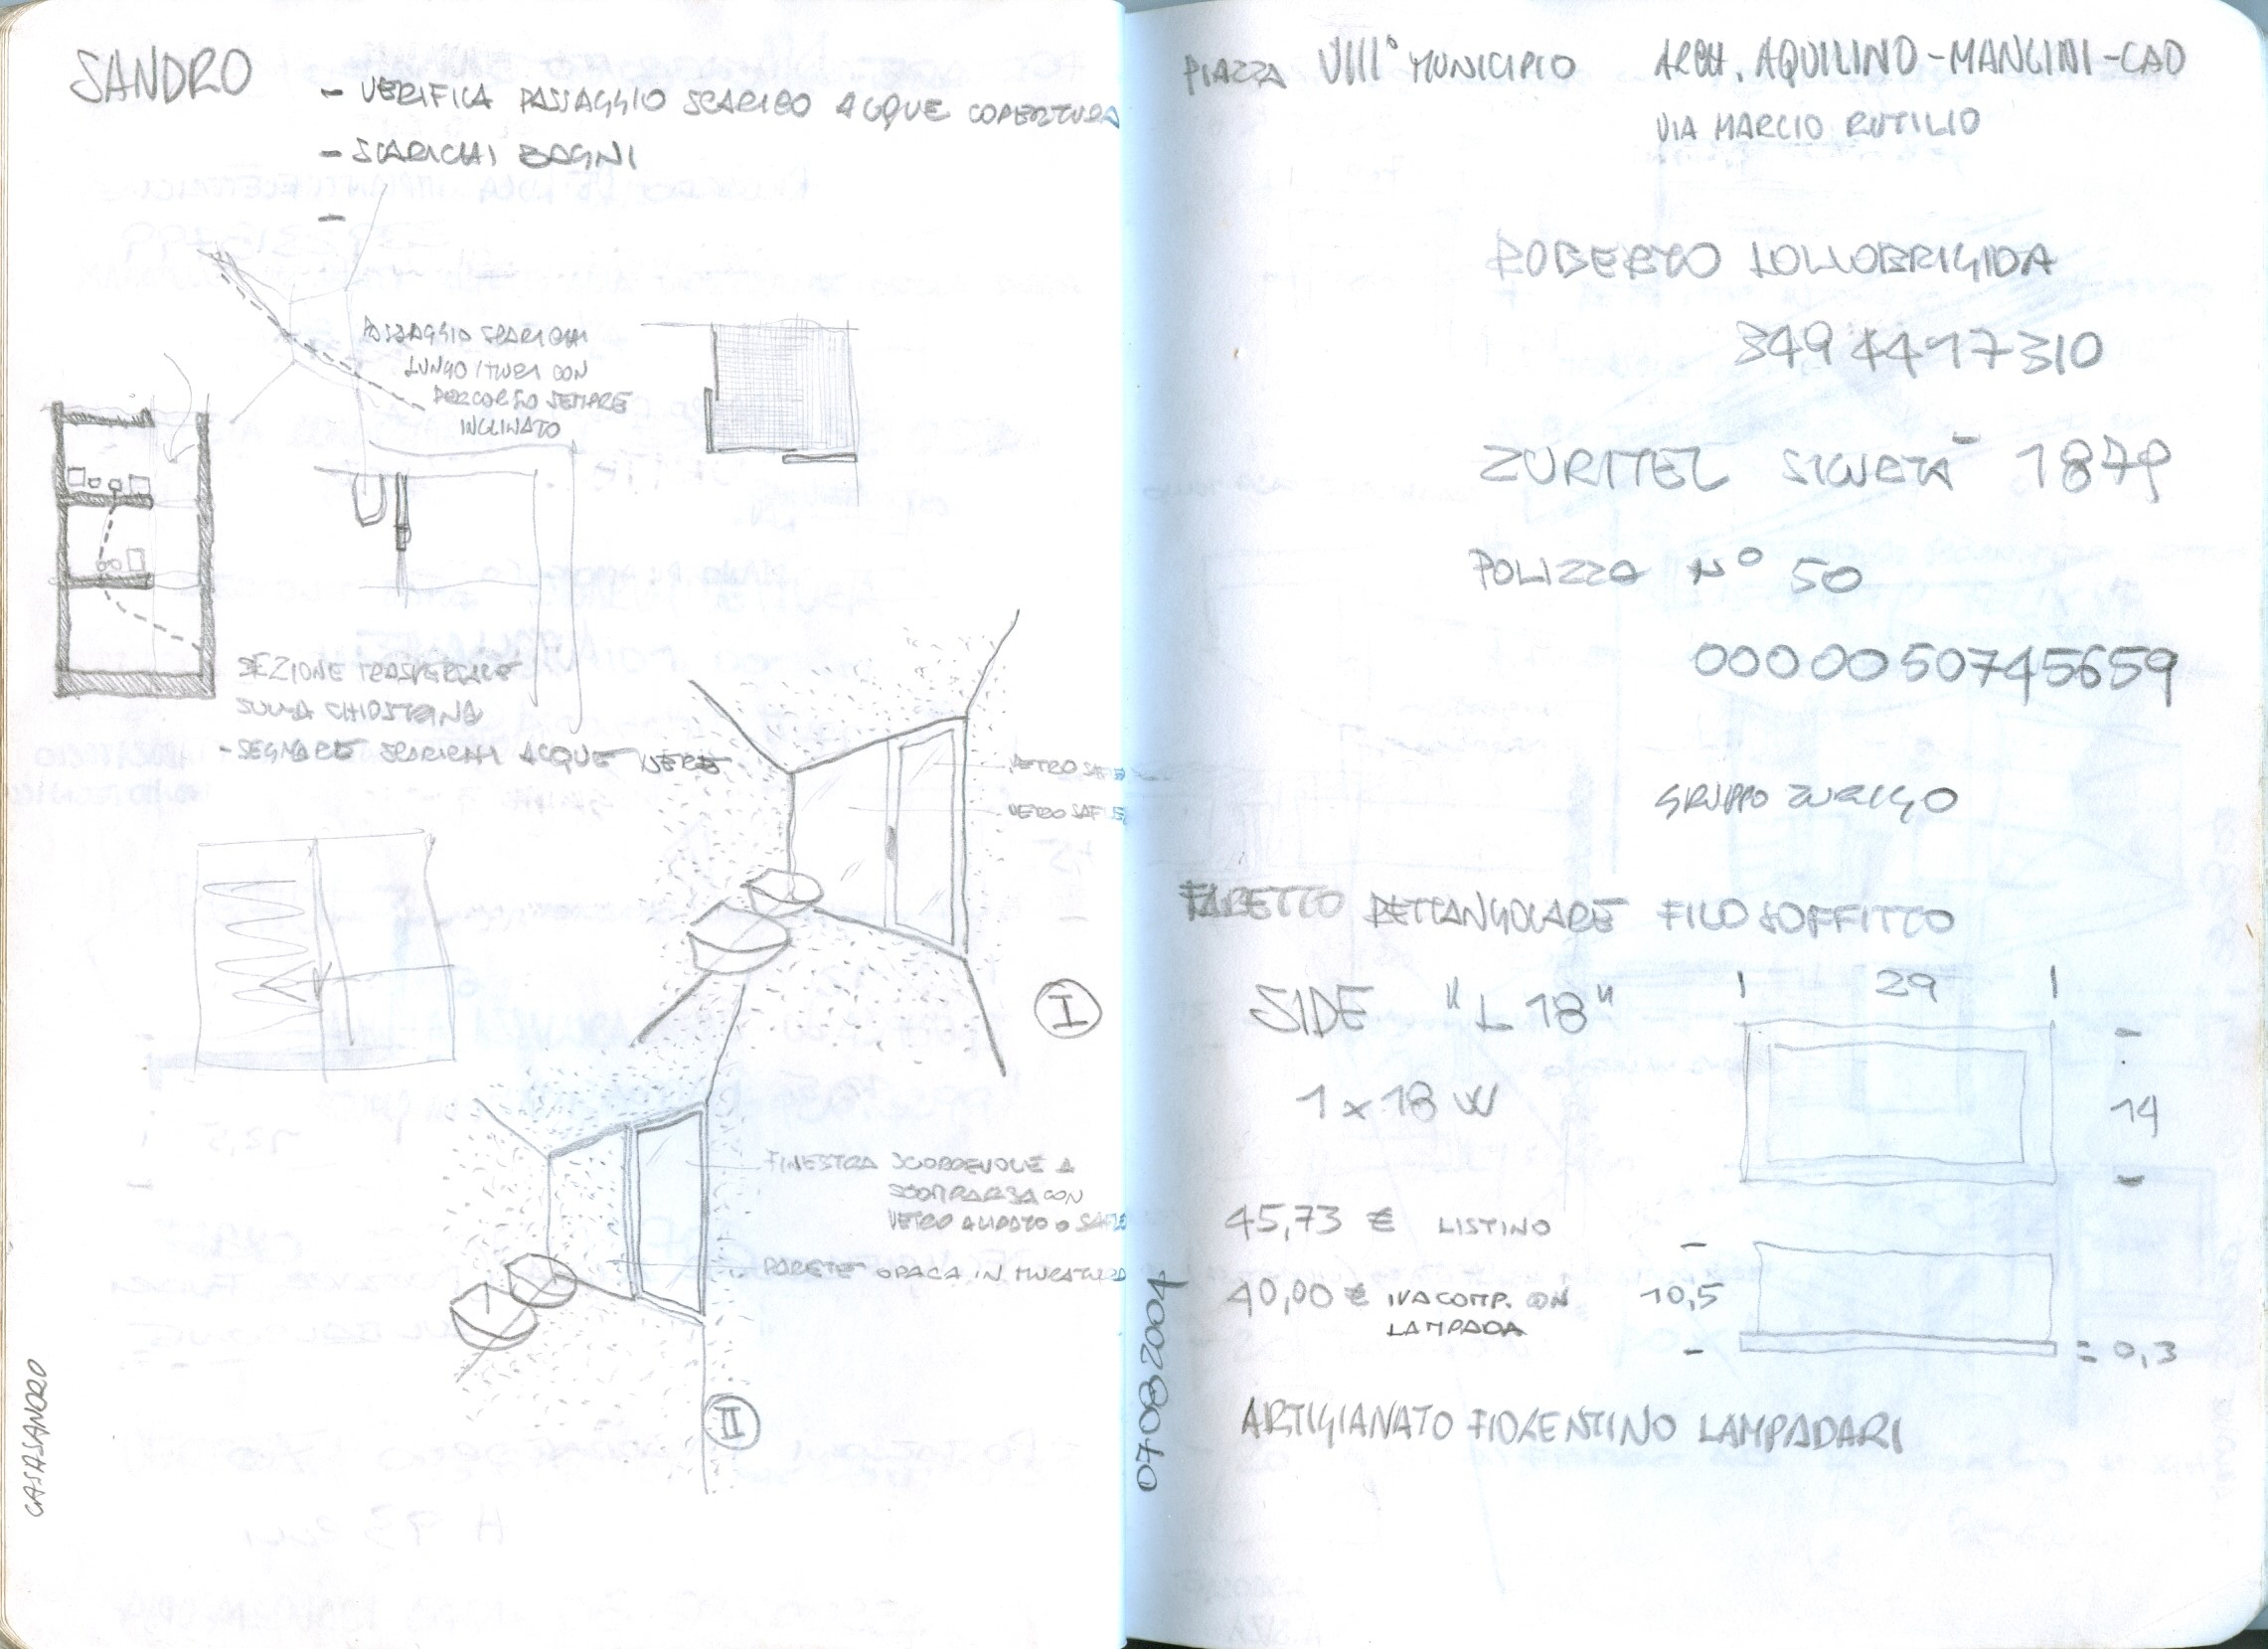 SANDRO
- VERIFICA PASSAGGIO SCARICO ACQUE COPERTURA
- SCARICHI BAGNI
-
PASSAGGIO SCARICHI
LUNGO I MURI CON
PERCORSO SEMPRE
INCLINATO
SEZIONE TRASVERSALE
SULLA CHIOSTRINA
- SEGNARE SCARICHI ACQUE NERE
VETRO SAFE
VETRO SAFE
I
FINESTRA SCORREVOLE A
SCOMPARSA CON
VETRO O
PARETE OPACA IN MURATURA
II
CASA SANDRO
PIAZZA VIII° MUNICIPIO ARCH. AQUILINO-MANCINI-CAO
VIA MARCIO RUTILIO
ROBERTO LOLLOBRIGIDA
349 4417310
ZURITEL SICURTÀ 1879
POLIZZA N° 50
0000050745659
GRUPPO ZURIGO
FARETTO RETTANGOLARE FILO SOFFITTO
SIDE "L 18"
29
1 x 18 W
14
45,73 € LISTINO
40,00 € IVA COMP. CON
LAMPADA
10,5
= 0,3
ARTIGIANATO FIORENTINO LAMPADARI
07082004